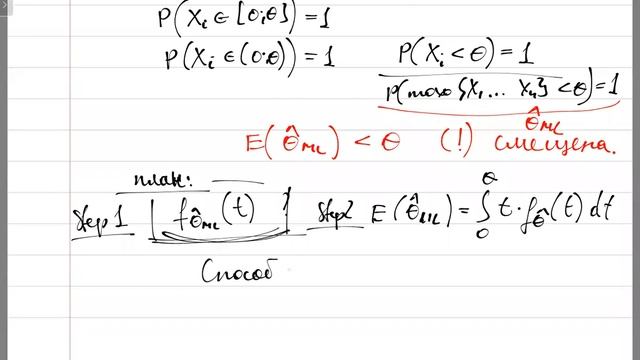 P(Xi ∈ [0;θ]) = 1
P(Xi ∈ (0;θ)) = 1
P(Xi < θ) = 1
P(max{X1 ... Xn} < θ) = 1
θ̂ML
E(θ̂ML) < θ (!) смещена.
план:
Step 1 f_θ̂ML(t) Step2 E(θ̂ML) = ∫₀^θ t · f_θ̂(t) dt
Способ